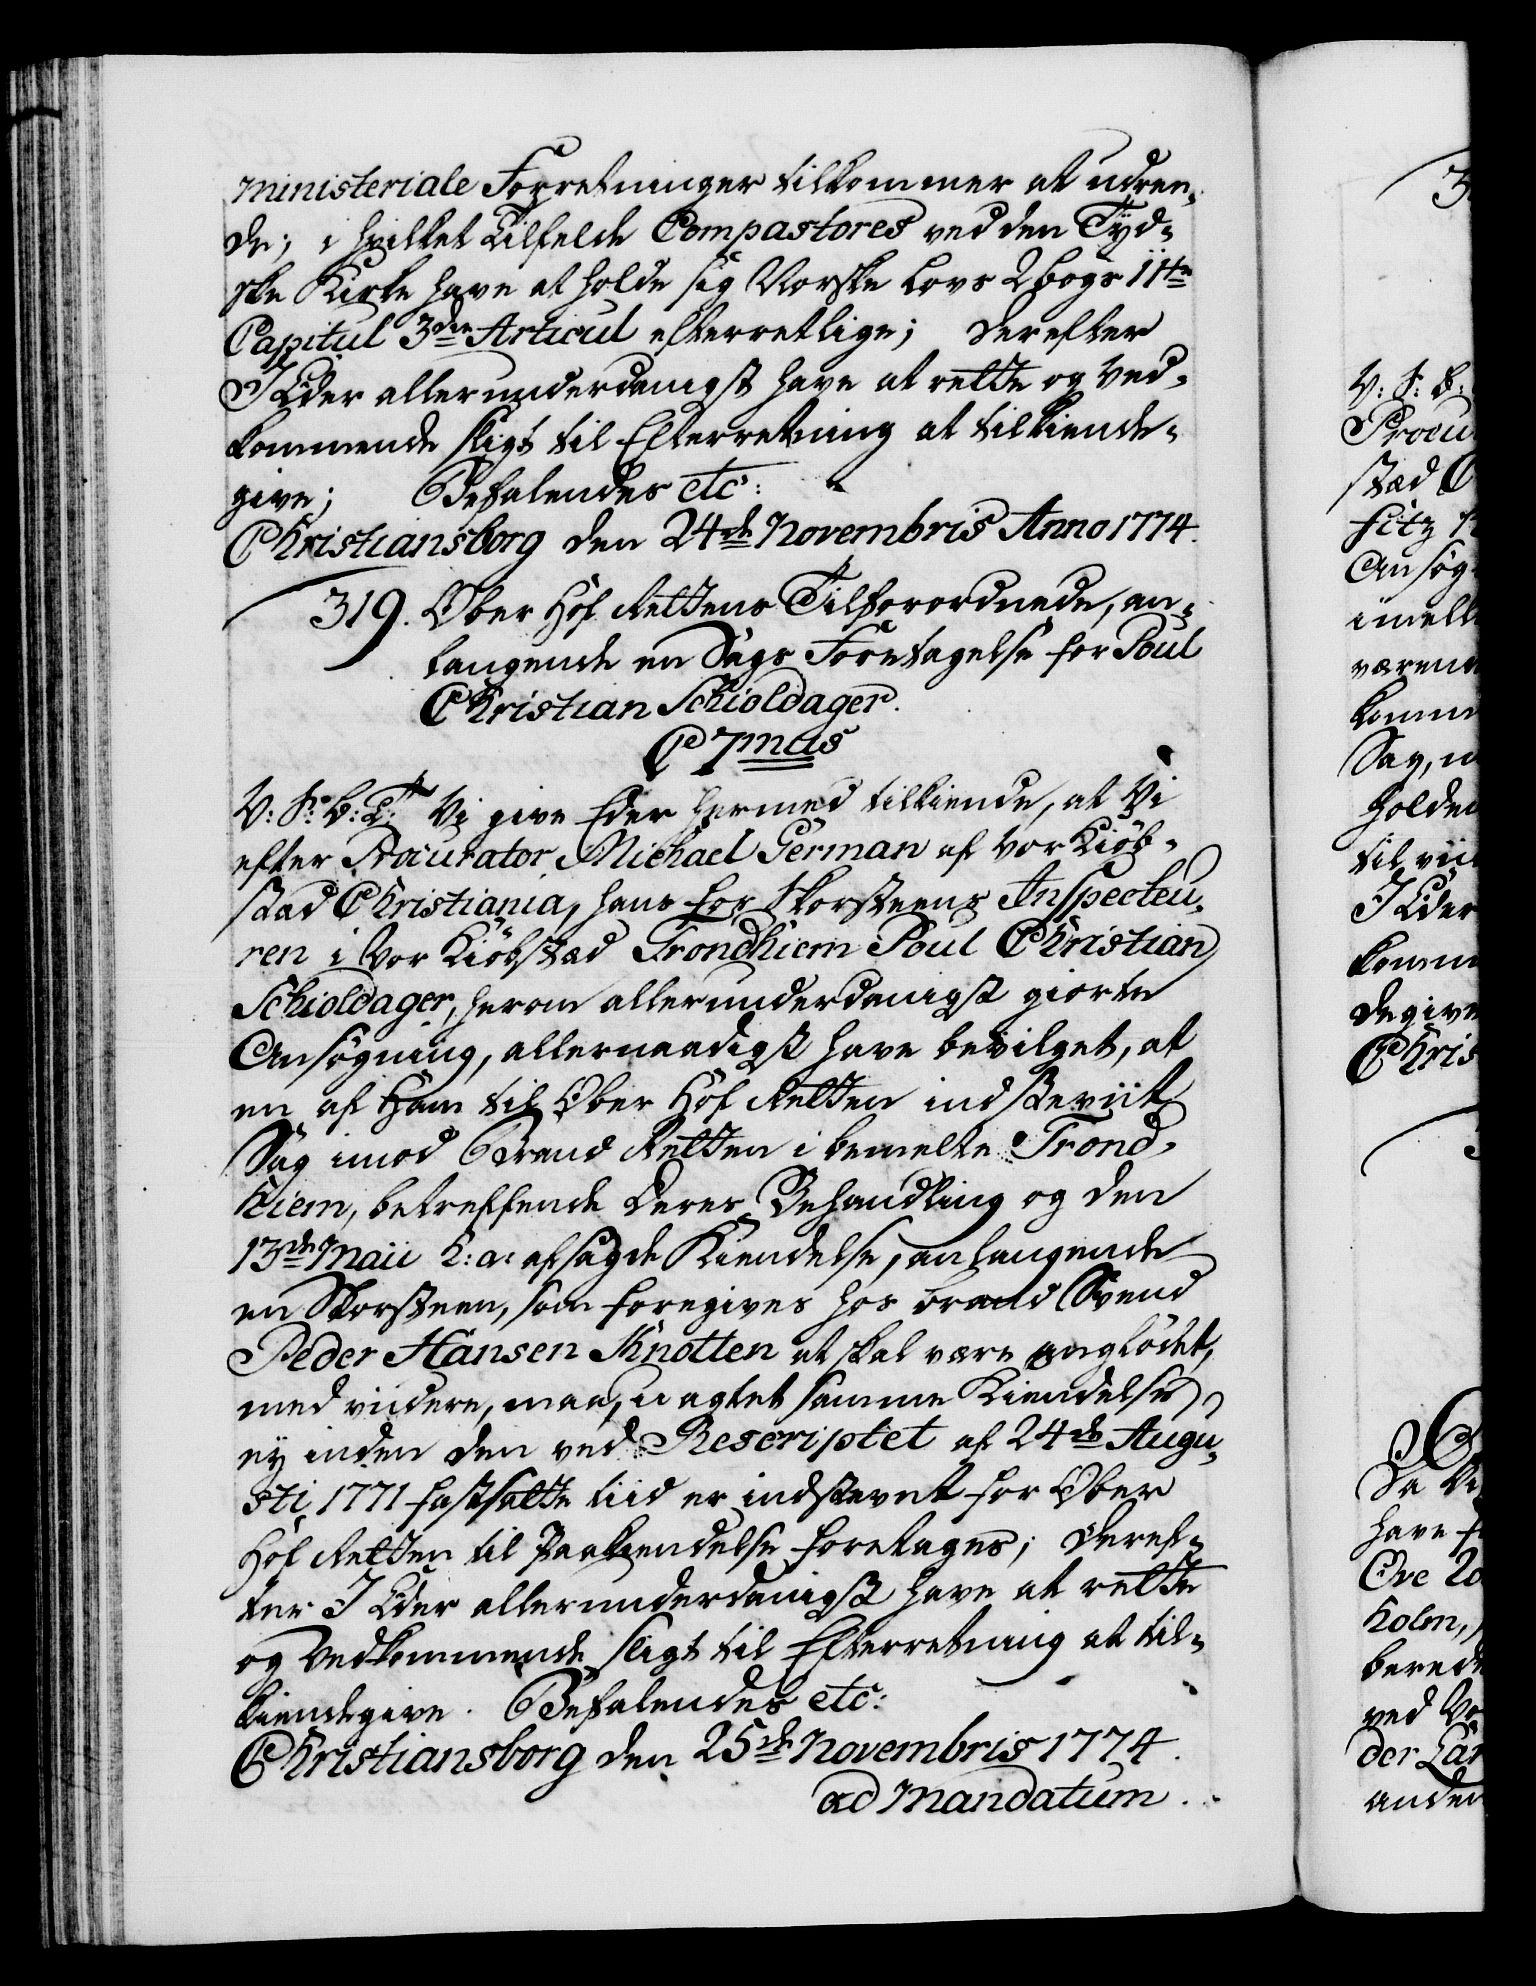 ministeriale Forretninger tilkommer at udren-
de; i hvilket Tilfelde Compastores ved den Tyd-
ske Kirke have at holde sig Norske Lovs 2 bogs 11te
Capitul 3die Articul efterretlige; Derefter
I Eder allerunderdanigst have at rette og Ved-
kommende sligt til Efterretning at tilkiende-
give; Befalendes etc:
Christiansborg den 24de Novembris Anno 1774.
319. Ober Hof Rettens Tilforordnede, an-
langende en Sags Foretagelse for Poul
Christian Schioldager.
C 7mus
V: S: b: T: Vi give Eder hermed tilkiende, at Vi
efter Procurator Michael German af vor Kiøb-
stad Christiania, hans for Skorsteens Inspecteu-
ren i Vor Kiøbstad Trondhiem Poul Christian
Schioldager, herom allerunderdanigst giorte
Ansøgning, allernaadigst have bevilget, at
en af Ham til Ober Hof Retten indstevnt
Sag imod Brand Retten i bemelte Trond-
hiem, betreffende Deres Behandling og den
13de Maii h: a: afsagde Kiendelse, anlangende
en Skorsteen, som foregives hos brand Svend
Peder Hansen Knotten at skal være anglødet,
med viidere, maa, uagtet samme Kiendelse
ey inden den ved Rescriptet af 24de Augu-
sti 1771 fastsatte tiid er indstevnt for Ober
Hof Retten til Paakiendelse foretages; Deref-
ter I Eder allerunderdanigst have at rette
og Vedkommende sligt til Efterretning at til-
kiendegive. Befalendes etc:
Christiansborg den 25de Novembris 1774.
ad Mandatum.